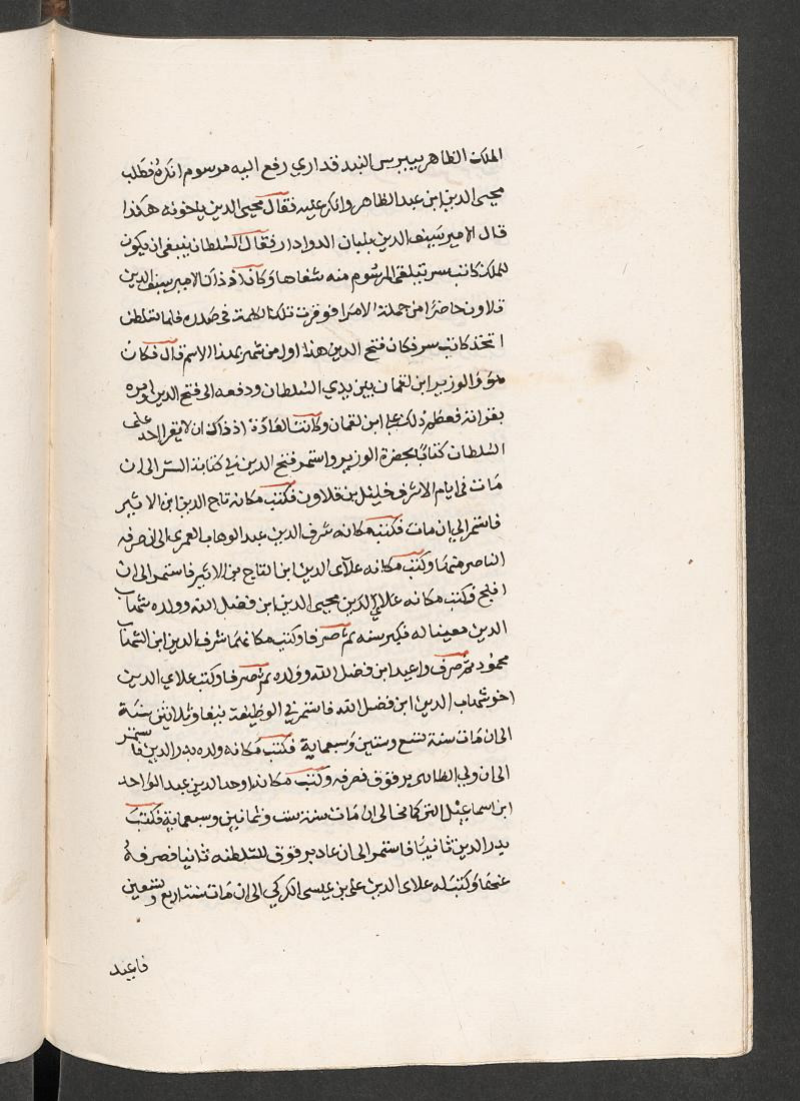 الملك الظاهر بيبرس البندقداري رفع اليه مرسوم انكره فطلب
محيى الدين ابن عبد الظاهر وانكر عليه فقال محيى الدين ياخونه هكذا
قال الامير سيف الدين بلبان الدوادار فقال السلطان ينبغي ان يكون
للملك كاتب سر يتلقى المرسوم منه شفاها وكان اذ ذاك الامير سيف الدين
قلاون حاضرا من جملة الامرا فوقرت تلك الكلمة في صدره فلما تسلطن
اتخذ كاتب سر فكان فتح الدين هذا اول من شهر بهذا الاسم قال فكان
هو والوزير ابن لقمان بين يدي السلطان ودفعه الى فتح الدين وامره
بقراته فعظم ذلك على ابن لقمان وكانت العادة اذ ذاك ان لا يقرا احد على
السلطان كتابا بحضرة الوزير واستمر فتح الدين في كتابة السر الى ان
مات في ايام الاشرف خليل بن قلاون فكتب مكانه تاج الدين ابن الاثير
فاستمر الى ان مات فكتب مكانه شرف الدين عبد الوهاب العمرى الى ان صرفه
الناصر عنها وكتب مكانه علاى الدين ابن التاج بن الاثير فاستمر الى ان
افلج فكتب مكانه علاى الدين محيى الدين ابن فضل الله وولده شهاب
الدين معينا له لكبر سنه ثم صرفا وكتب مكانهما شرف الدين ابن الشهاب
محمود ثم صرف واعيد ابن فضل الله وولده ثم صرفا وكتب علاى الدين
اخو شهاب الدين ابن فضل الله فاستمر في الوظيفة نيفا وثلاثين سنة
الى ان مات سنة تسع وستين وسبعماية فكتب مكانه ولده بدر الدين فاستمر
الى ان ولي الظاهر برقوق فصرفه وكتب مكانه اوحد الدين عبد الواحد
ابن اسماعيل التركمانى الى ان مات سنة ست وثمانين وسبعماية فكتب
بدر الدين ثانيا فاستمر الى ان عاد برقوق للسلطنه ثانيا فصرفه
عنها وكتب له علاى الدين على بن عيسى الكركي الى ان مات سنة اربع وتسعين
فاعيد